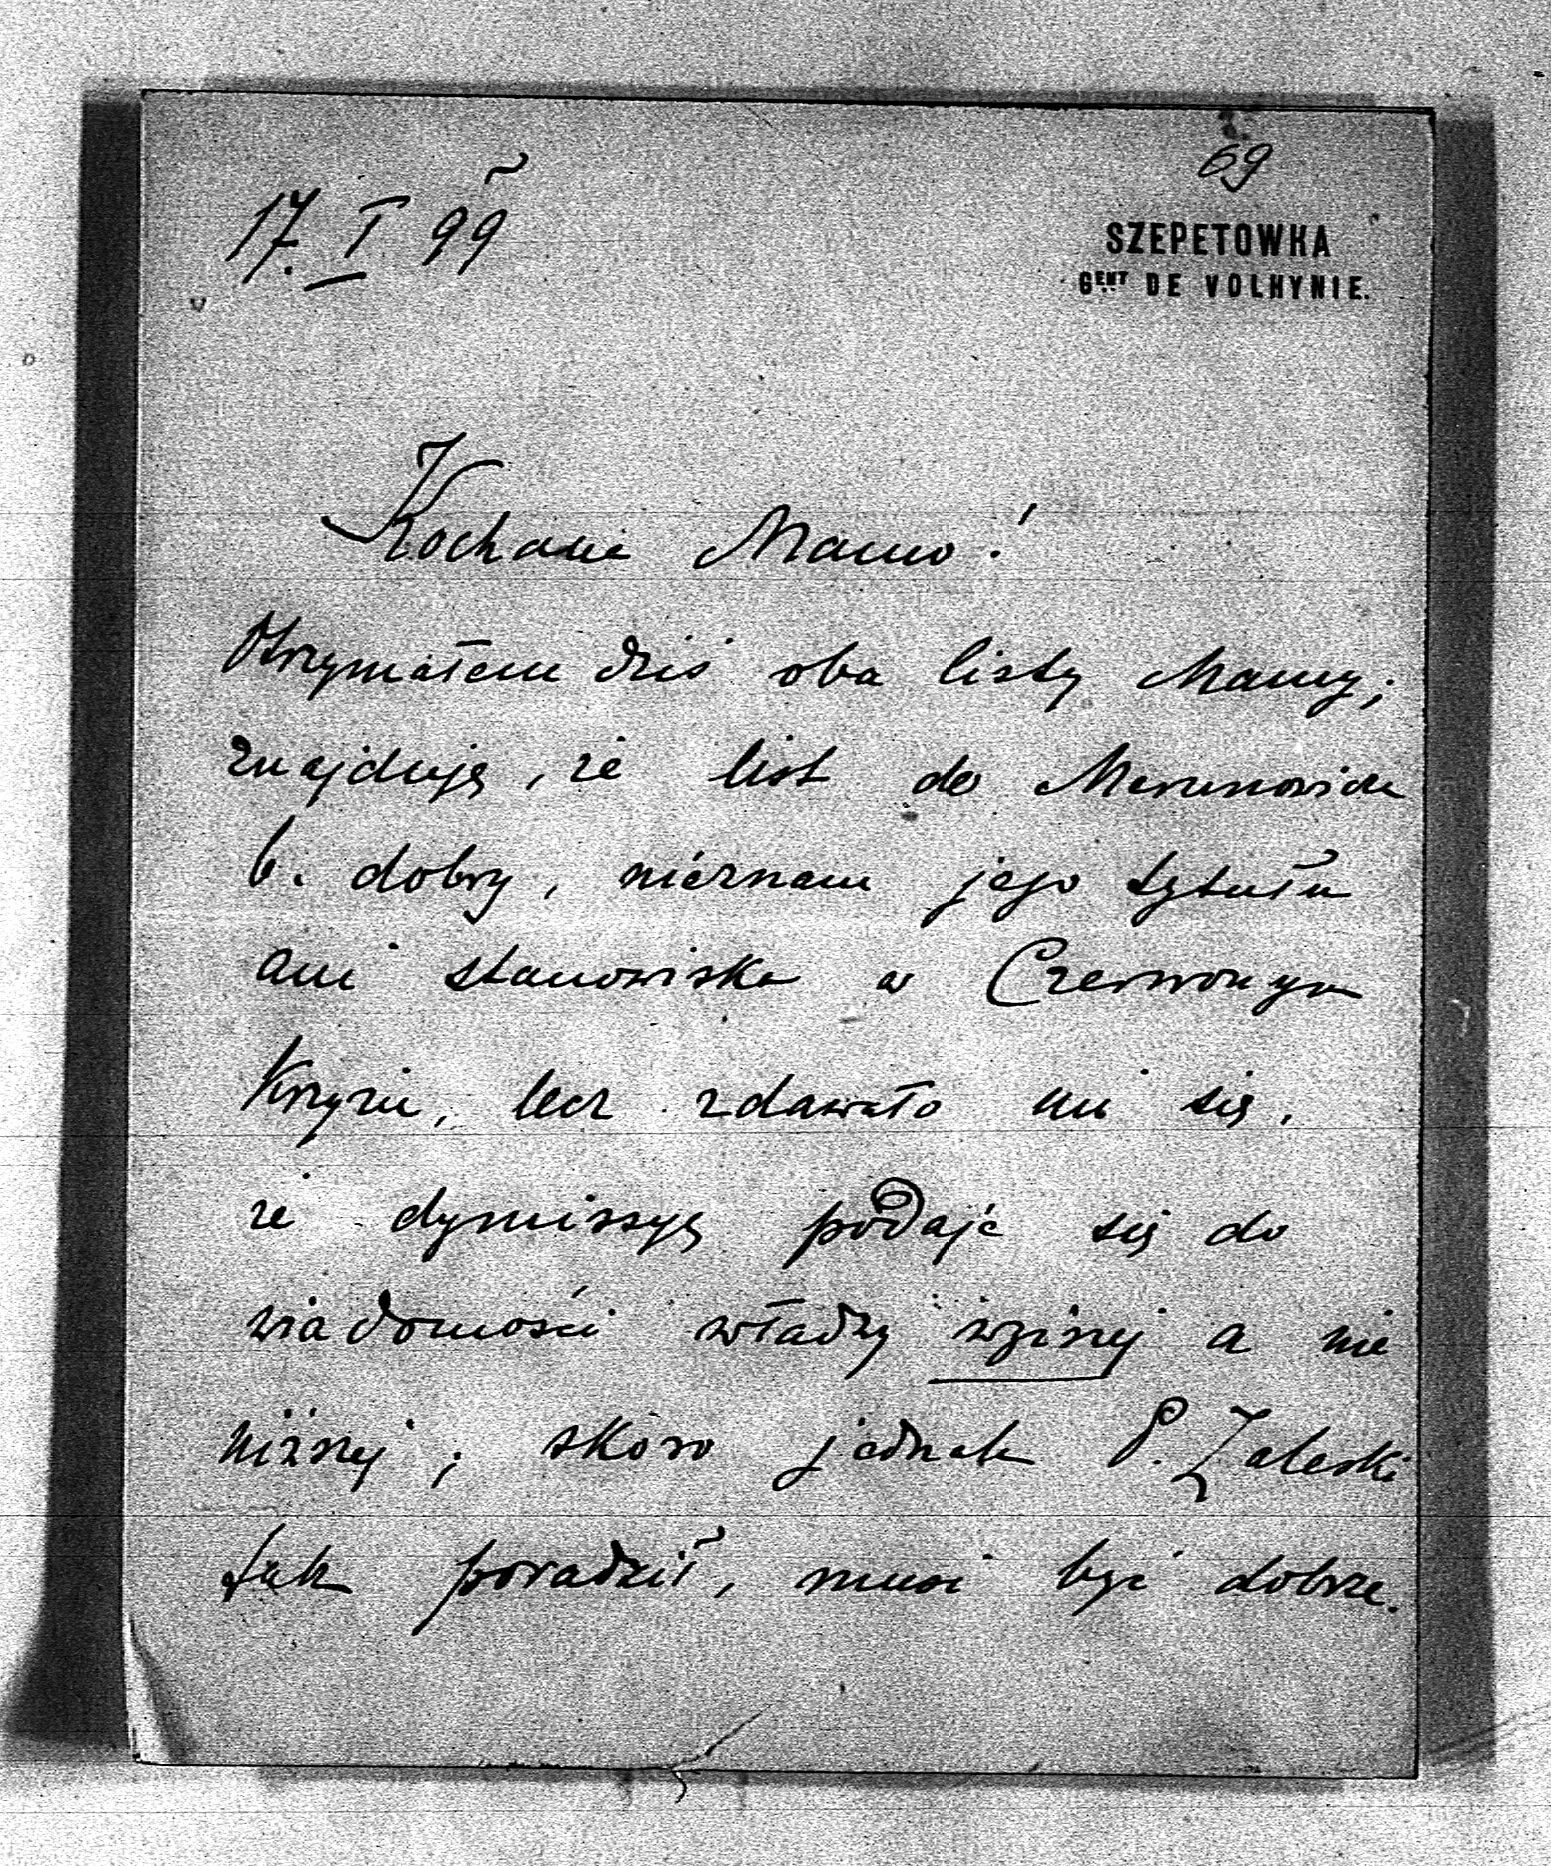 69
17. I 99
SZEPETOWKA
GENT DE VOLHYNIE.
Kochana Mamo!
Otrzymałem dziś oba listy Mamy;
znajduję, że list do
b. dobry, nieznam jego tytułu
ani stanowiska w Czerwonym
Krzyżu, lecz zdawało mi się,
że dymissyę podaje się do
wiadomości władzy wyższej a nie
niższej; skoro jednak P. Zaleski
tak poradził, musi być dobrze.